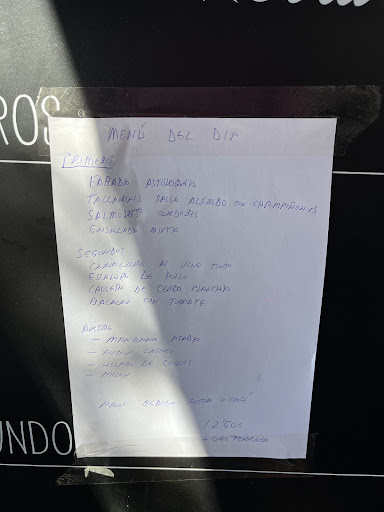 ROS
MENÚ DEL DIA
PRIMEROS
FABADA ASTURIANA
TALLARINES SALSA ALFREDO CON CHAMPIÑONES
SALMOREJO CORDOBES
ENSALADA MIXTA
SEGUNDOS
CARRILLERA AL VINO TINTO
ESCALOPE DE POLLO
CHULETA DE CERDO PLANCHA
BACALAO CON TOMATE
POSTRE
- MANZANA ASADA
- PUDIN CASERO
- HELADO DE
- MELON
PAN BEBIDA POSTRE O CAFÉ
UNDO
12'50€
TERRAZA